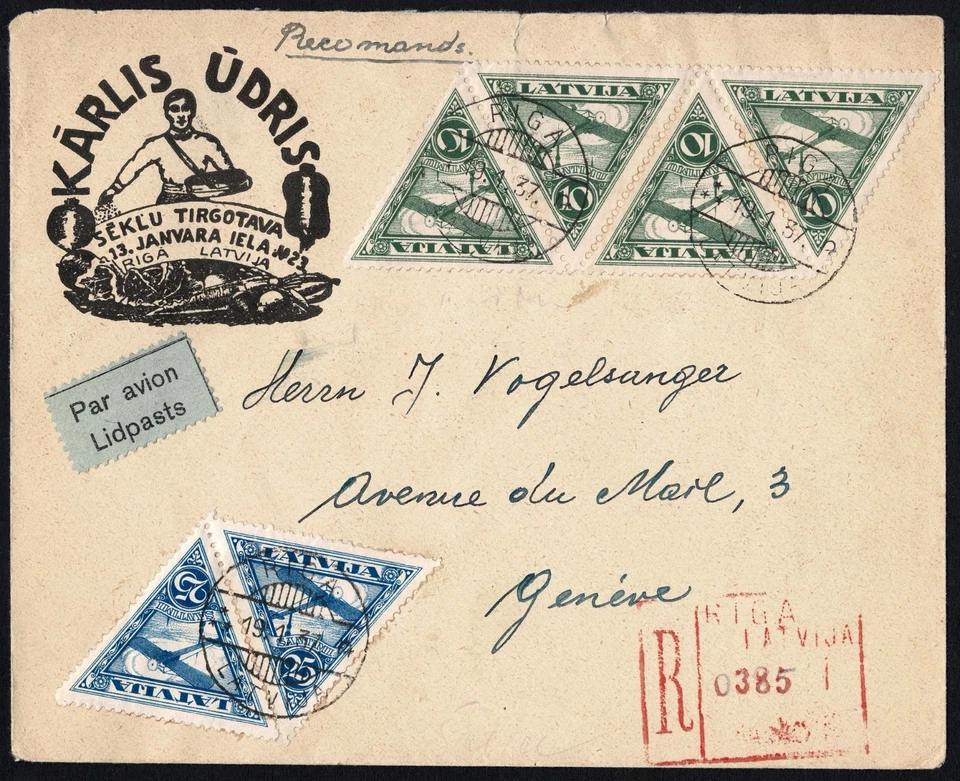 Recomands.
KĀRLIS ŪDRIS
SĒKLU TIRGOTAVA
13. JANVARA IELA № 23
RIGA LATVIJA
LATVIJA
10
LATVIJA
10
LATVIJA
10
LATVIJA
10
RIGA
19.1.31
RIG
19.1.31
Par avion
Lidpasts
Herrn J. Vogelsanger
Avenue du Mail, 3
Genéve
LATVIJA
25
SANTIMI
LATVIJA
25
RIGA
19.1.31
R
RIGA
LATVIJA
0385